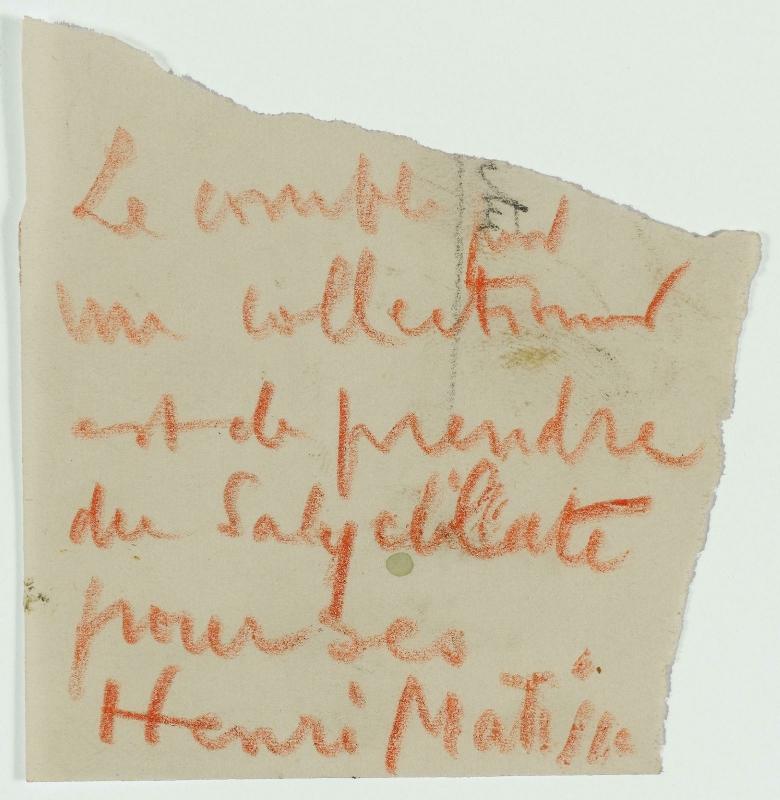 Le comble pour
un collectionneur
est de prendre
du Salycilcate
pour ses
Henri Matisse